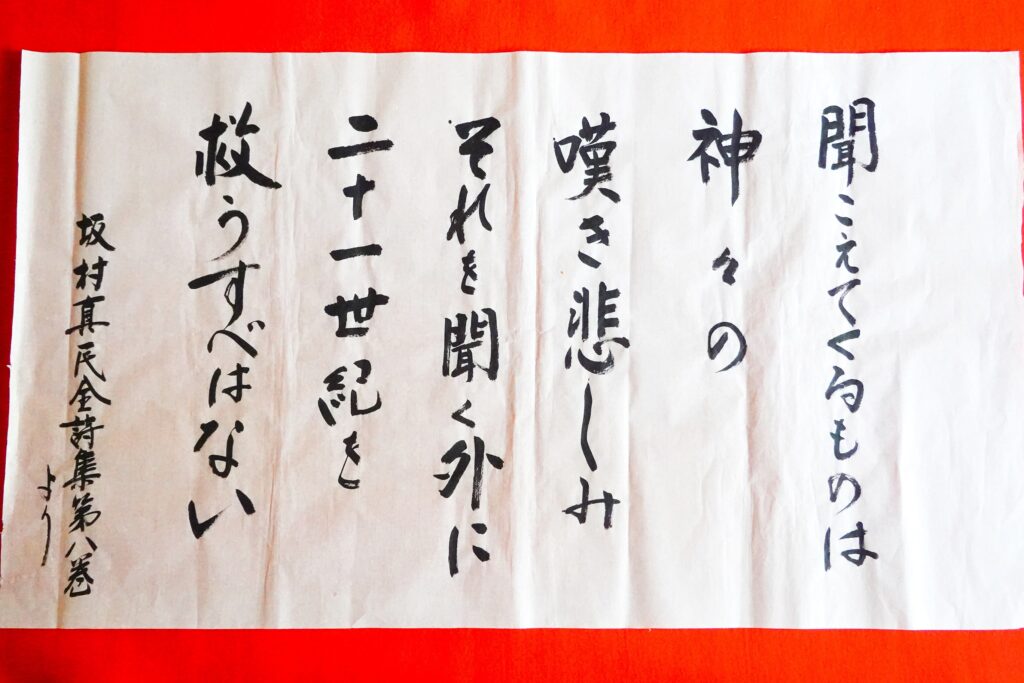 聞こえてくるものは
神々の
嘆き悲しみ
それを聞く外に
二十一世紀を
救うすべはない
坂村真民全詩集第八巻
より